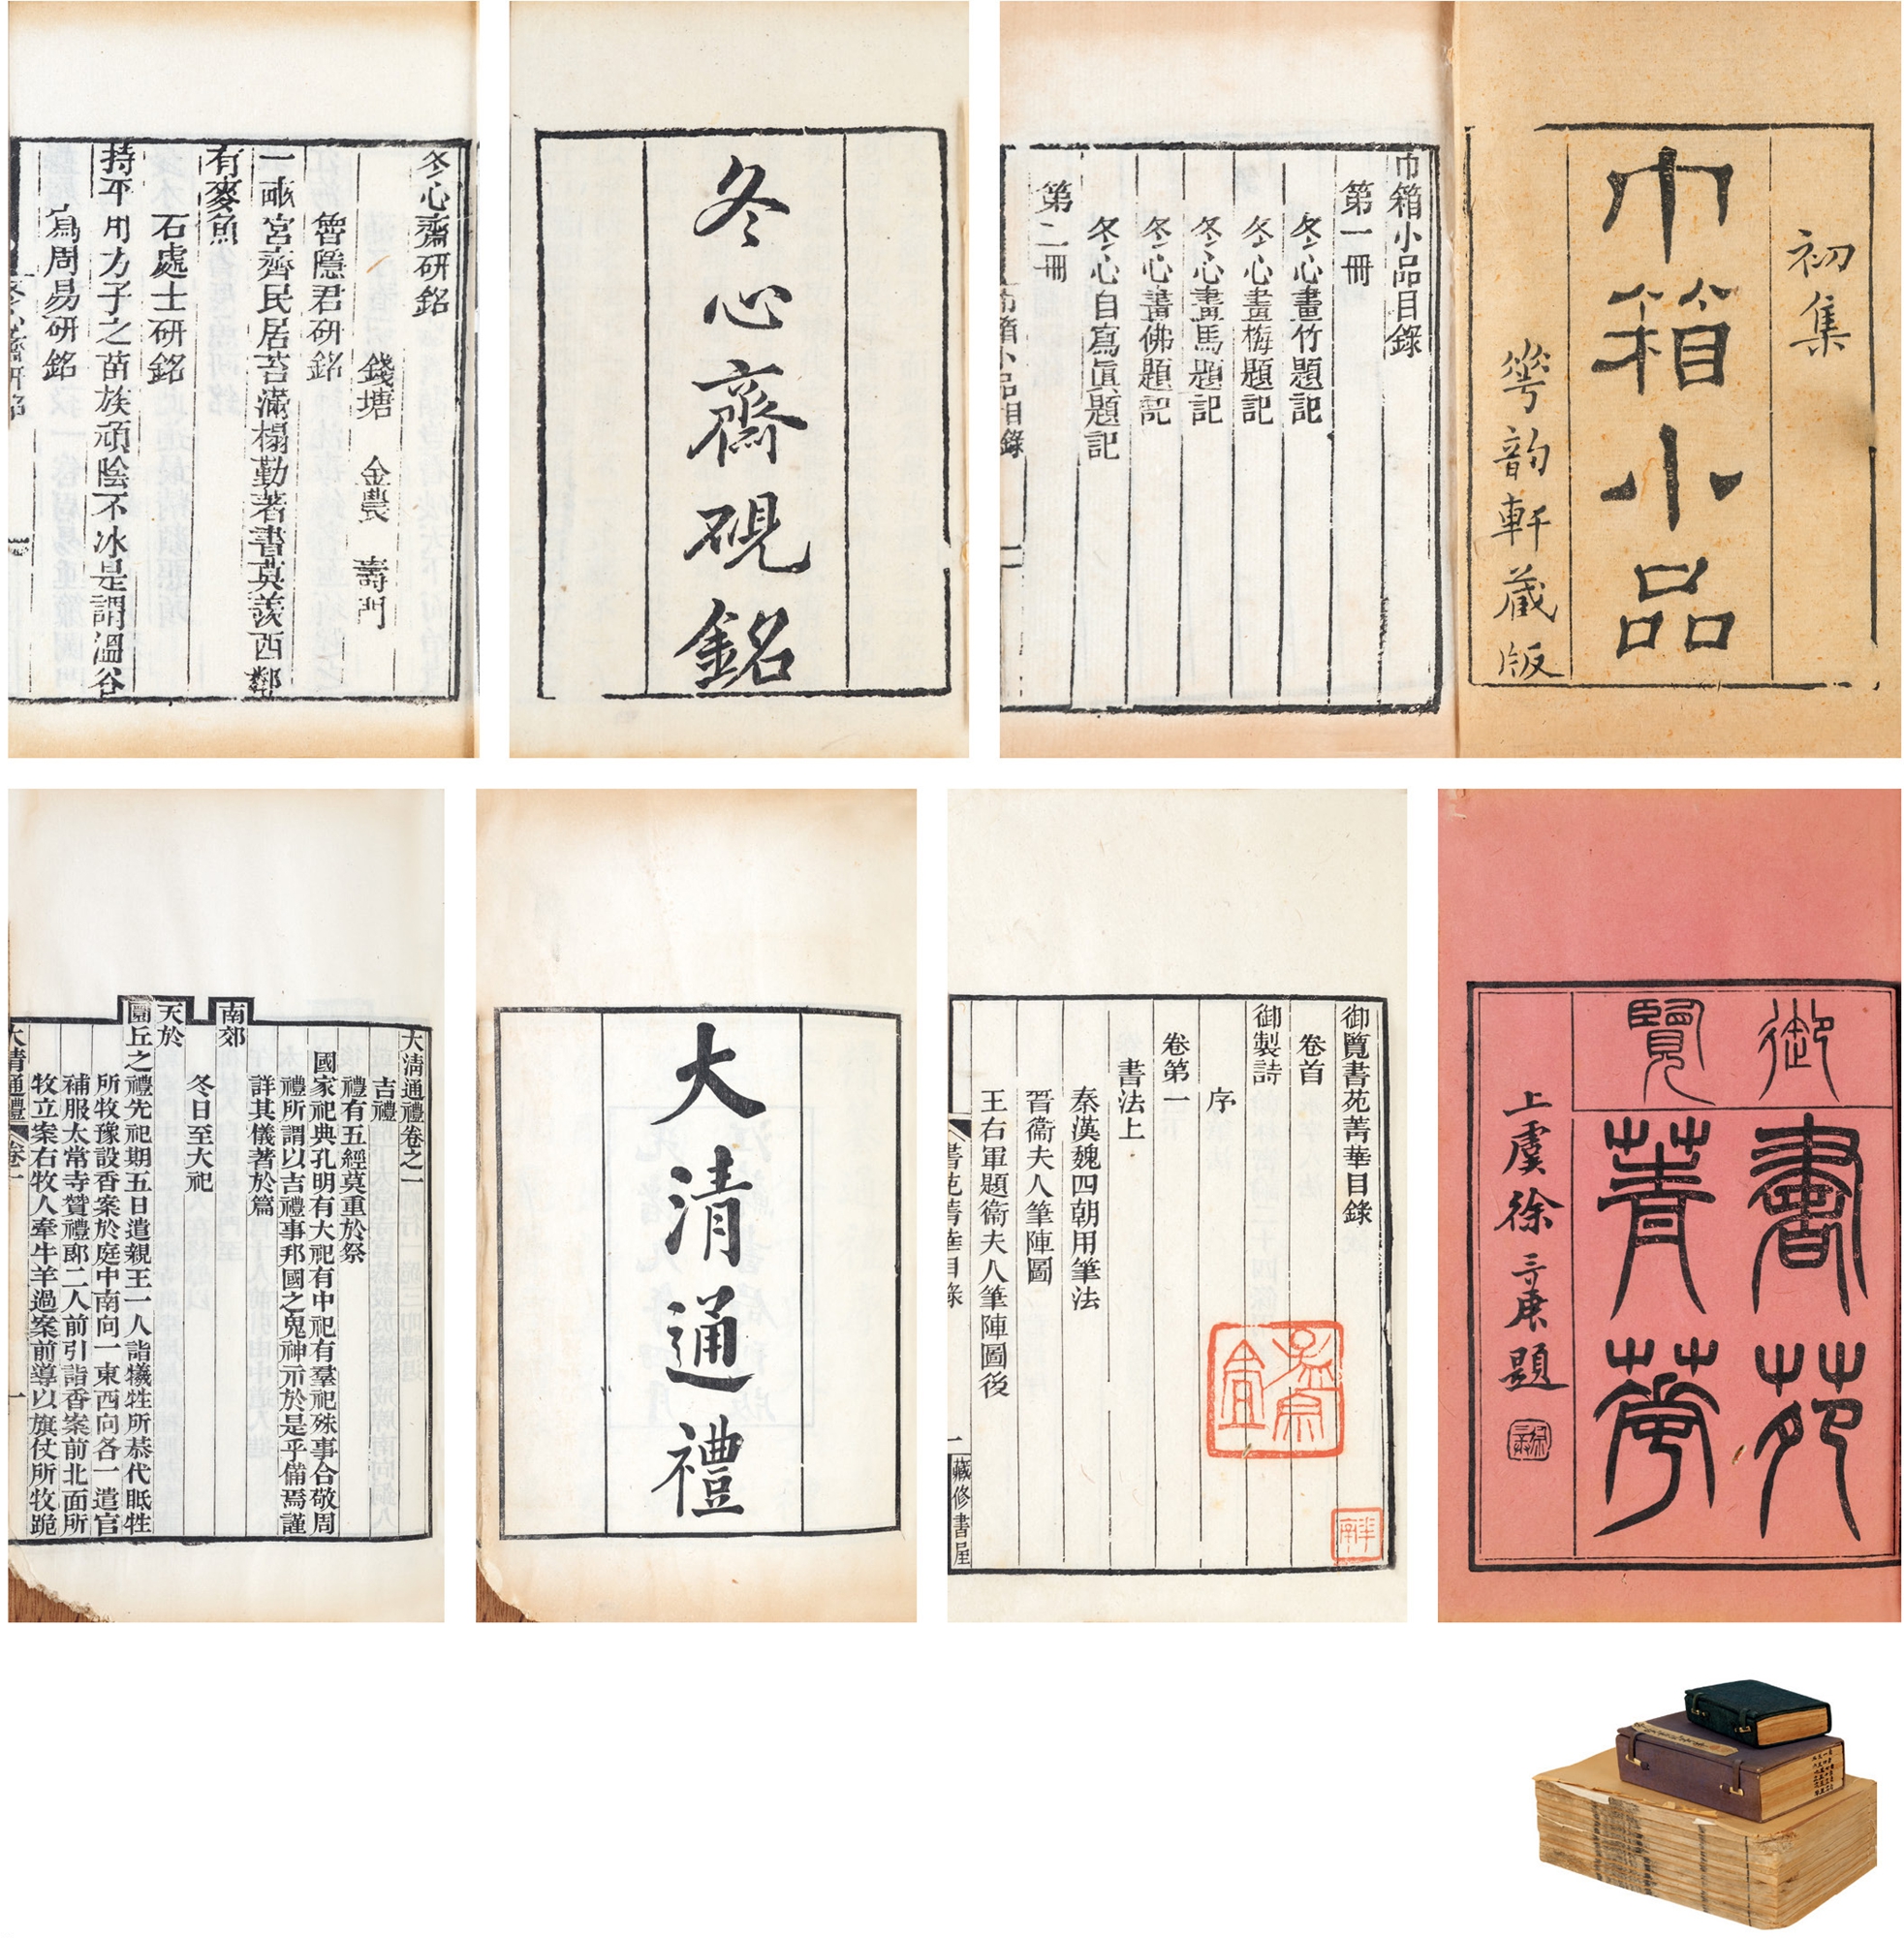 初集
巾箱小品
華韵軒藏版
巾箱小品目錄
第一冊
冬心畫竹題記
冬心畫梅題記
冬心畫馬題記
冬心畫佛題記
冬心自寫眞題記
第二冊
巾箱小品目錄
冬心齋硯銘
冬心齋研銘
錢塘 金農 壽門
魯隱君研銘
一畝宮齊民居苔滿榻勤著書莫羨西鄰
有麥魚
石處士研銘
持平用方子之苗族頑陰不冰是謂溫谷
寫周易研銘
冬心齋研銘
御覽
書苑
菁華
上虞徐三庚題
御覽書苑菁華目錄
卷首
御製詩
序
卷第一
書法上
秦漢魏四朝用筆法
晉衞夫人筆陣圖
王右軍題衞夫人筆陣圖後
書苑菁華目錄
一
藏修書屋
大清通禮
大清通禮卷之一
吉禮
禮有五經莫重於祭
國家祀典孔明有大祀有中祀有羣祀殊事合敬周
禮所謂以吉禮事邦國之鬼神示於是乎備焉謹
詳其儀著於篇
南郊
冬日至大祀
天於
圜丘之禮先祀期五日遣親王一人詣犧牲所恭代眡牲
所牧豫設香案於庭中南向一東西向各一遣官
補服太常寺贊禮郎二人前引詣香案前北面所
牧立案右牧人牽牛羊過案前導以旗仗所牧跪
大清通禮 卷一
一